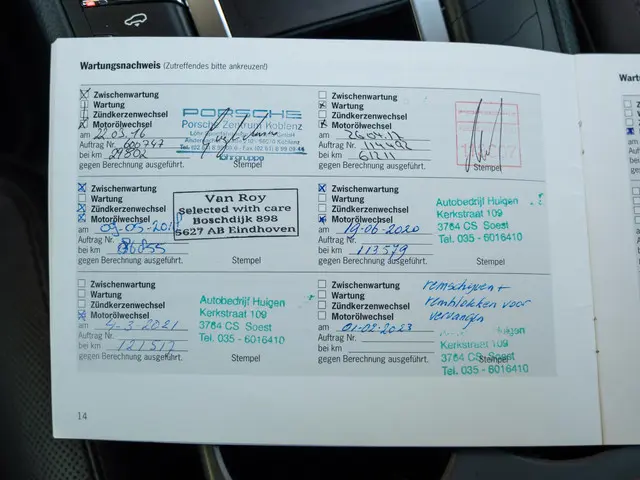 Wartungsnachweis (Zutreffendes bitte ankreuzen!)
Zwischenwartung
Wartung
Zündkerzenwechsel
Motorölwechsel
am 22.03.16
Auftrag Nr. 600747
bei km 29802
gegen Berechnung ausgeführt.
PORSCHE
Porsche Zentrum Koblenz
Löhrgruppe
Zwischenwartung
Wartung
Zündkerzenwechsel
Motorölwechsel
am 26.04.17
Auftrag Nr. 114492
bei km 61211
gegen Berechnung ausgeführt.
Stempel
Zwischenwartung
Wartung
Zündkerzenwechsel
Motorölwechsel
am 09-05-201
Auftrag Nr.
bei km 86855
gegen Berechnung ausgeführt.
Van Roy
Selected with care
Boschdijk 898
5627 AB Eindhoven
Stempel
Zwischenwartung
Wartung
Zündkerzenwechsel
Motorölwechsel
am 19-06-2020
Auftrag Nr.
bei km 113579
gegen Berechnung ausgeführt.
Autobedrijf Huigen
Kerkstraat 109
3764 CS Soest
Tel. 035 - 6016410
Stempel
Zwischenwartung
Wartung
Zündkerzenwechsel
Motorölwechsel
am 4-3-2021
Auftrag Nr.
bei km 121517
gegen Berechnung ausgeführt.
Autobedrijf Huigen
Kerkstraat 109
3764 CS Soest
Tel. 035 - 6016410
Stempel
Zwischenwartung
Wartung
Zündkerzenwechsel
Motorölwechsel
am 01-02-2023
Auftrag Nr.
bei km
gegen Berechnung ausgeführt.
remschijven +
remblokken voor
vervangen
Huigen
Kerkstraat 109
3764 CS Soest
Stempel
Tel. 035 - 6016410
14